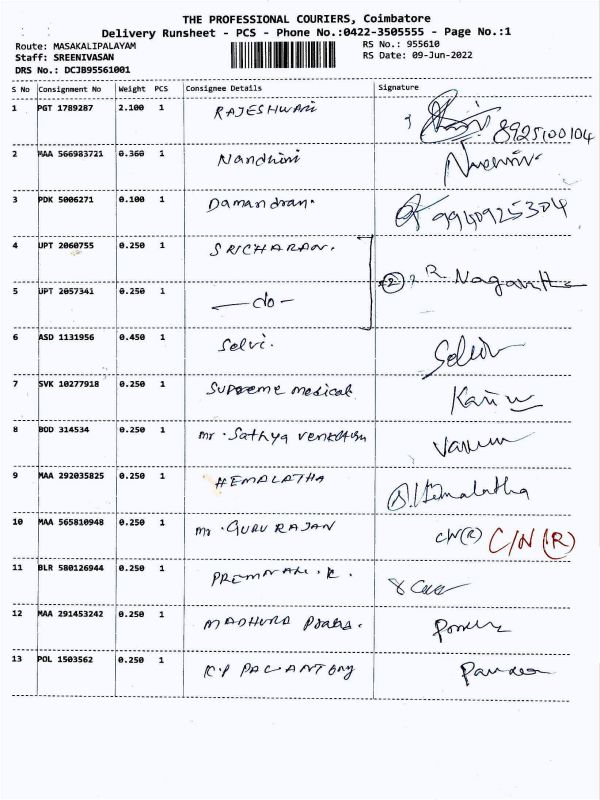 THE PROFESSIONAL COURIERS, Coimbatore
Delivery Runsheet - PCS - Phone No.:0422-3505555 - Page No.:1
Route: MASAKALIPALAYAM
RS No.: 955610
Staff: SREENIVASAN
RS Date: 09-Jun-2022
DRS No.: DCJB95561001
S No Consignment No Weight PCS Consignee Details Signature
1 PGT 1789287 2.100 1 RAJESHWARI 8925100104
2 MAA 566983721 0.360 1 Nandhini
3 PDK 5006271 0.100 1 Damandran. 9940925304
4 UPT 2060755 0.250 1 SRICHARAN.
R. Nagarath
5 UPT 2057341 0.250 1 —do—
6 ASD 1131956 0.450 1 Selvi. Selvi
7 SVK 10277918 0.250 1 Supreme medical
8 BOD 314534 0.250 1 mr. Sathya
9 MAA 292035825 0.250 1 HEMALATHA Hemalatha
10 MAA 565810948 0.250 1 Mr. GURU RAJAN C/N(R) C/N (R)
11 BLR 580126944 0.250 1
12 MAA 291453242 0.250 1 MADHURA
13 POL 1503562 0.250 1 K.P